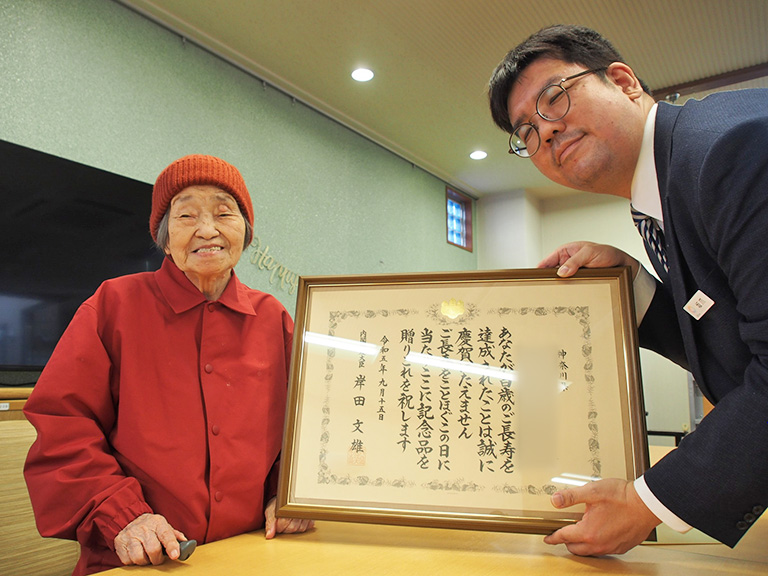 Happy
神奈川
あなたが百歳のご長寿を
達成されたことは誠に
慶賀にたえません
ご長寿をことほぐこの日に
当たりここに記念品を
贈りこれを祝します
令和五年九月十五日
内閣総理大臣 岸田文雄